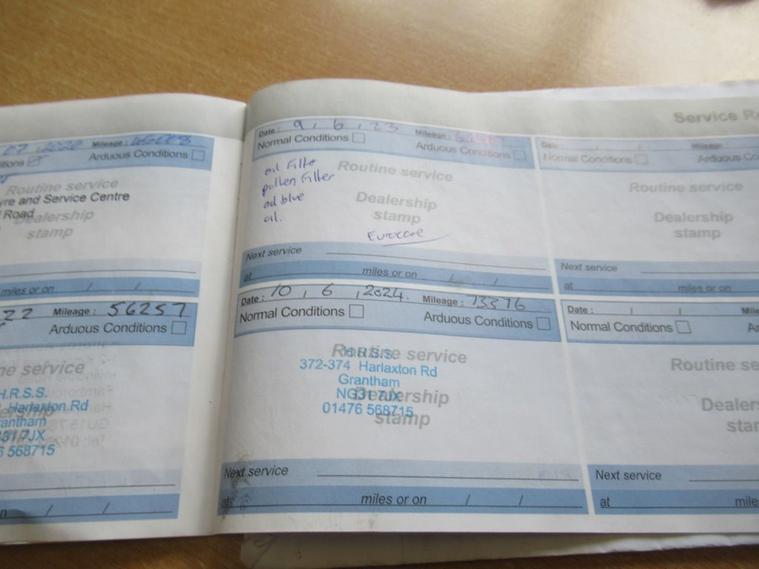 Service
Mileage:
Arduous Conditions
Routine service
yre and Service Centre
Road
Dealership
stamp
miles or on / /
22 Mileage: 56257
Arduous Conditions
ne service
H.R.S.S.
Harlaxton Rd
rantham
31 7JX
568715
stamp
/ /
Date: 9, 6, 23 Mileage:
Normal Conditions
Arduous Conditions
oil filte
pollen filter
ad blue
oil.
Routine service
Dealership
stamp
Eurocare
Next service
at miles or on / /
Date: 10, 6, 2024. Mileage:
Normal Conditions
Arduous Conditions
Routine service
H.R.S.S.
372-374 Harlaxton Rd
Grantham
NG31 7JX
01476 568715
Dealership
stamp
Next service
at miles or on / /
Date: Mileage
Normal Conditions
Arduous Co
Routine service
Dealership
stamp
Next service
at miles or on
Date: / /
Normal Conditions
Routine se
Dealers
star
Next service
at mile